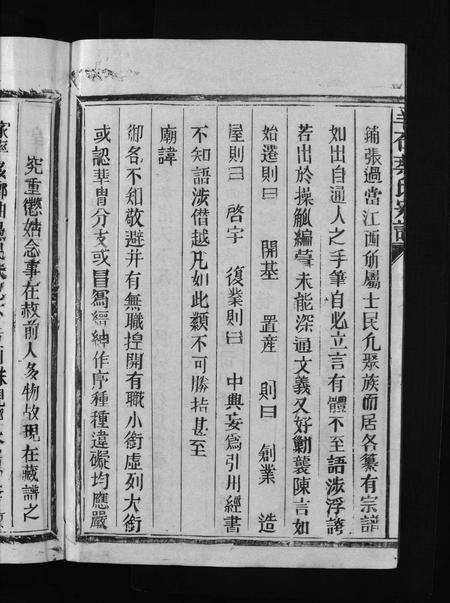 鋪張過當江西所屬士民凡聚族而居各纂有宗譜
如出自通人之手筆自必立言有體不至語涉浮誇
若出於操觚編彙未能深通文義又好勦襲陳言如
始遷則曰 開基 置產 則曰 創業 造
屋則曰 啓宇 復業則曰 中興妄爲引用經書
不知語涉僣越凡如此類不可勝指甚至
廟諱
御名不知敬避并有無職捏開有職小銜虛列大銜
或認華胄分支或冒爲縉紳作序種種違礙均應嚴
究重懲姑念事在赦前人多物故現在藏譜之